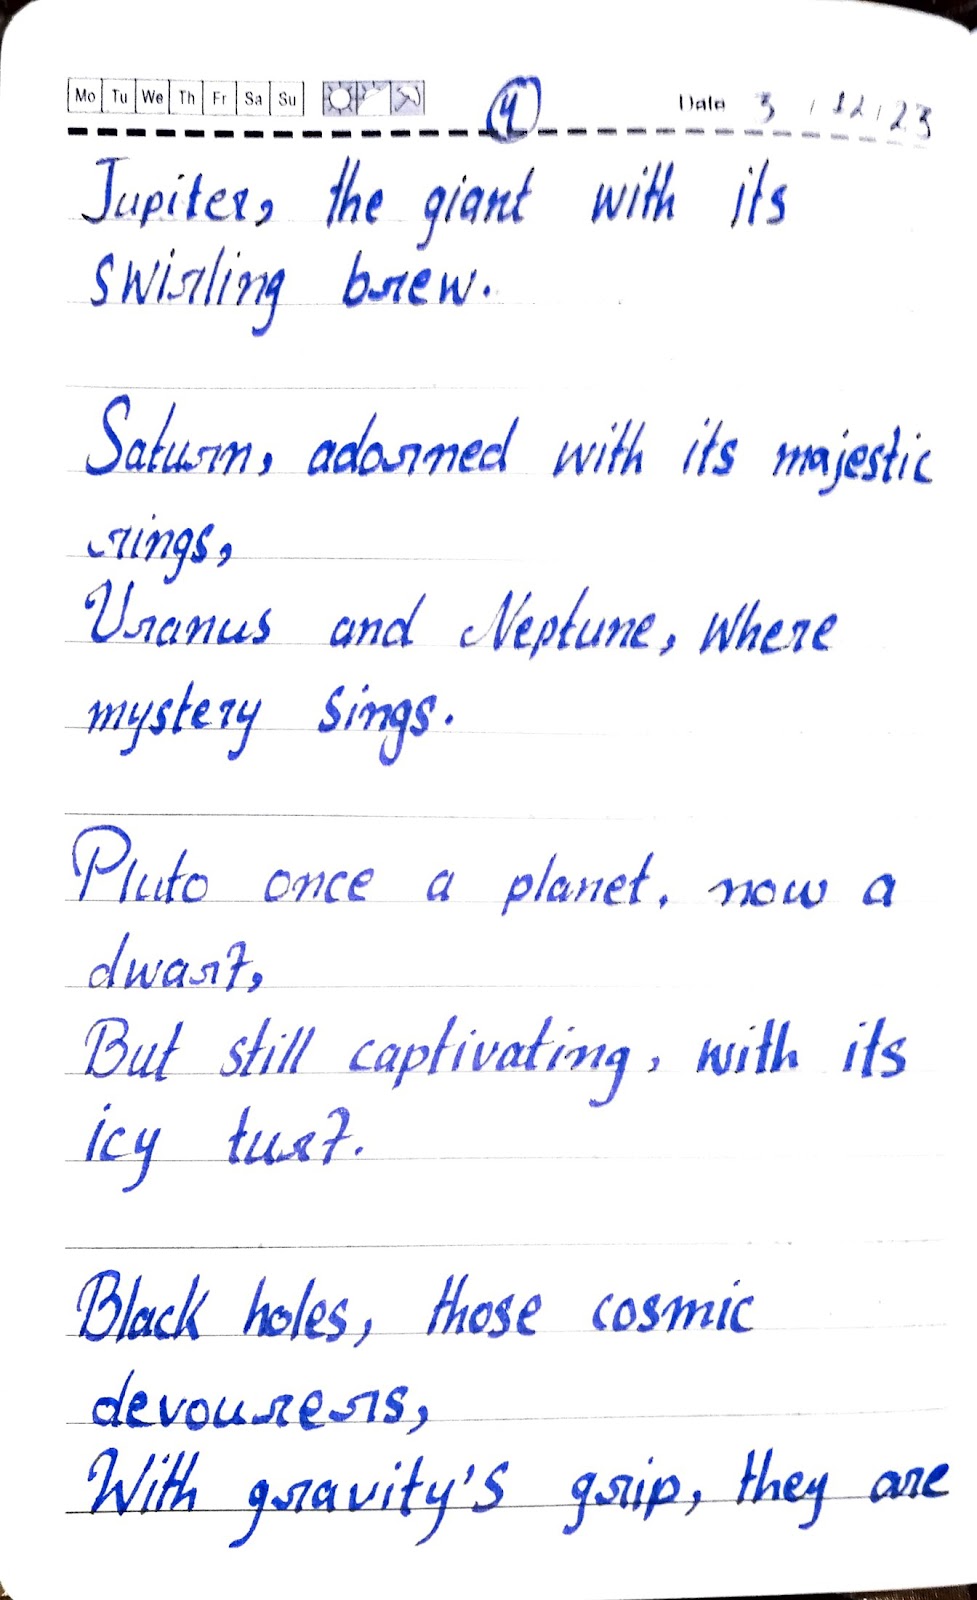 Mo Tu We Th Fr Sa Su 4 Date 3 / 12 / 23
Jupiter, the giant with its
swirling brew.
Saturn, adorned with its majestic
rings,
Uranus and Neptune, where
mystery sings.
Pluto once a planet, now a
dwarf,
But still captivating, with its
icy turf.
Black holes, those cosmic
devourers,
With gravity's grip, they are